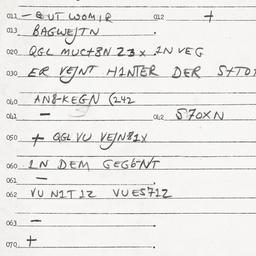 011 — BUT WOMIR 012 +
013 BAGWEJTN
020 QGL MUCT8N 23x IN VEG
030 ER VEJNT HINTER DER
040 (242
041 — 042 570XN
050 + QGL VU VEJN81X
060 IN DEM GEGENT
061 —
062 VU N1T12 VUE5712
063 —
070 +